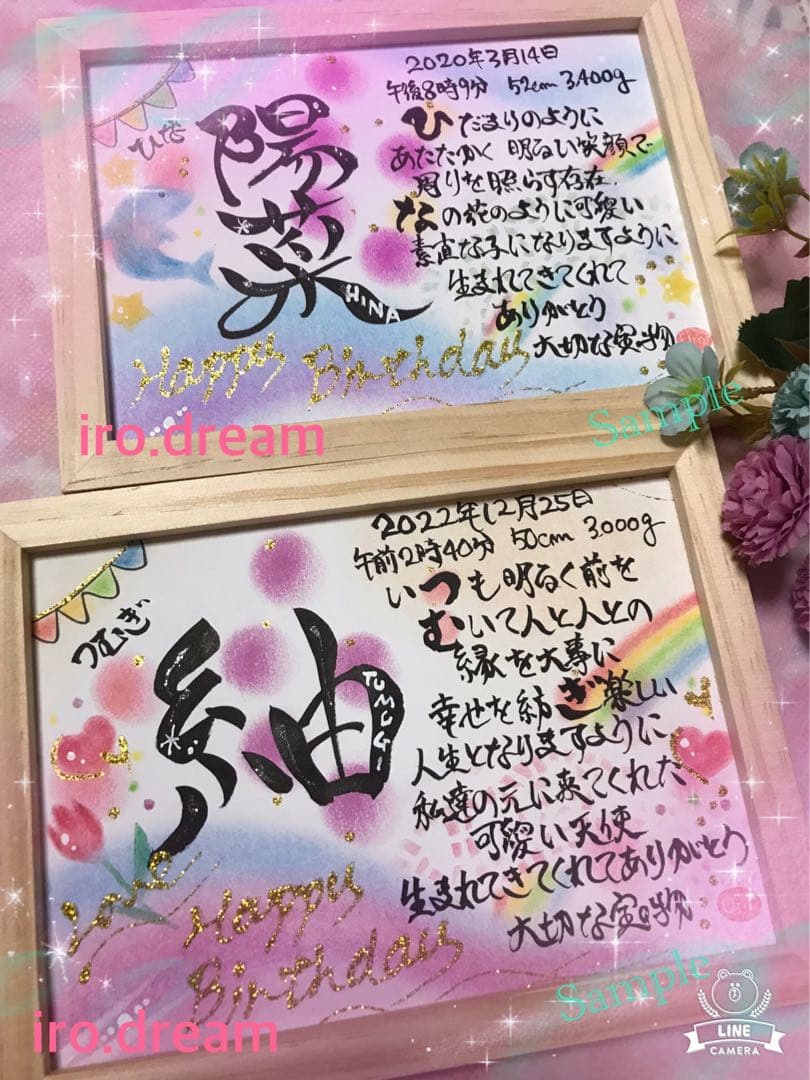 2020年3月14日
午後8時9分 52cm 3.400g
ひな
陽菜
HINA
ひだまりのように
あたたかく 明るい笑顔で
周りを照らす存在
なの花のように可愛い
素直な子になりますように
生まれてきてくれて
ありがとう
大切な宝物
Happy Birthday
iro.dream
Sample
2022年12月25日
午前2時40分 50cm 3.000g
つむぎ
紬
TUMUGI
いつも明るく前を
むいて人と人との
縁を大事に
幸せを紡ぎ楽しい
人生となりますように
私達の元に来てくれた
可愛い天使
生まれてきてくれてありがとう
大切な宝物
Love
Happy
Birthday
iro.dream
Sample
LINE
CAMERA